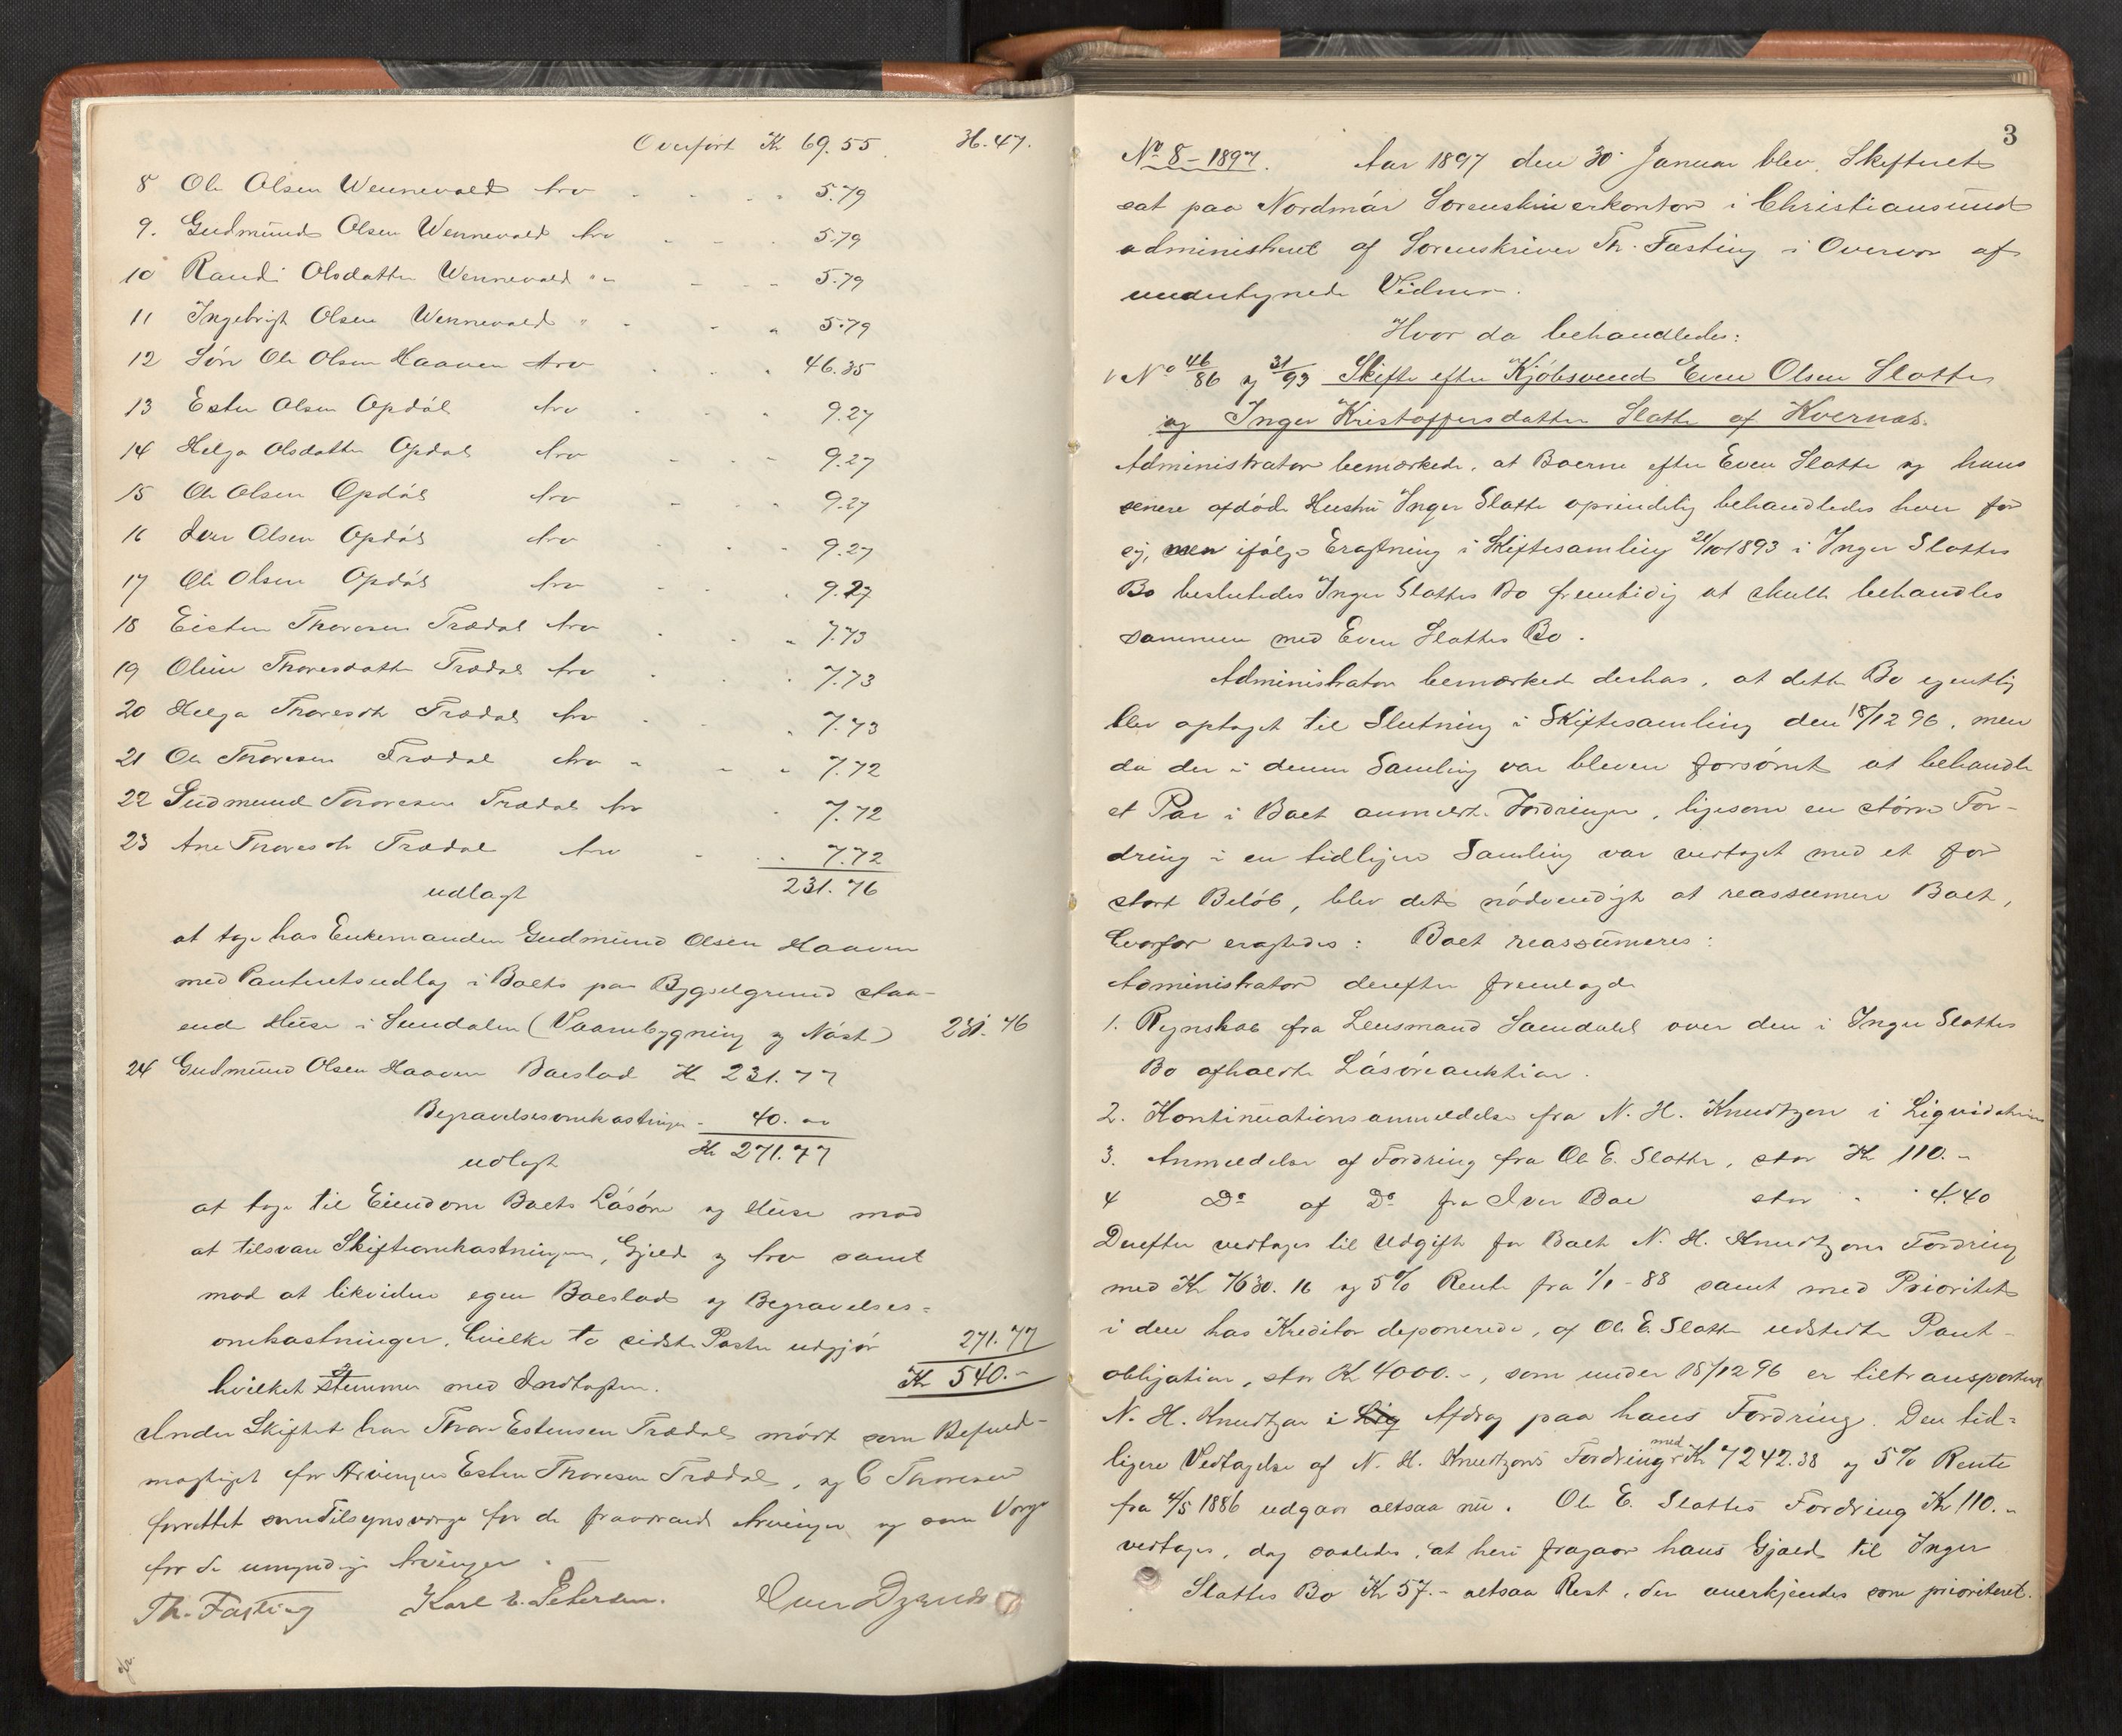 Overført Kr 69.55. 36.47.
8 Ole Olsen Wennevold Arv 5.79
9. Gudmund Olsen Wennevold Arv 5.79
10 Randi Olsdatter Wennevold " 5.79
11 Ingebrigt Olsen Wennevold " 5.79
12 Sön Ole Olsen Haaven Arv 46.35
13 Esten Olsen Opdöl Arv 9.27
14 Helga Olsdatter Opdal Arv 9.27
15 Ole Olsen Opdöl Arv 9.27
16 Iver Olsen Opdöl Arv 9.27
17 Ole Olsen Opdöl Arv 9.27
18 Eisten Thoresen Trædal Arv 7.73
19 Oline Thoresdatter Trædal Arv 7.73
20 Helga Thoresdtr Trædal Arv 7.73
21 Ole Thoresen Trædal Arv 7.72
22 Gudmund Thoresen Trædal Arv 7.72
23 Ane Thoresdtr Trædal Arv 7.72
udlagt 231.76
at tage hos Enkemanden Gudmund Olsen Haaven
med Panteretsudlæg i Boets paa Bygselgrund staa-
ende Huse i Sundalen (Vaanbygning og Nöst) 231.76
24 Gudmund Olsen Haaven Boeslod Kr 231.77
Begravelsesomkostninger - 40. "
udlagt Kr 271.77
at tage til Eiendom Boets Lösöre og Huse mod
at tilsvare Skifteomkostningerne, Gjeld og Arv samt
mod at likvidere egen Boeslod og Begravelses=
omkostninger, hvilke to sidste Poster udgjör 271.77
hvilket stemmer med Indtægten. Kr 540.-
Under Skiftet har Thore Estensen Trædal mödt som Befuld-
mægtiget for Arvingen Esten Thoresen Trædal, og C Thoresen
forrettet som Tilsynsværge for de fraværende Arvinger og som Værge
for de umyndige Arvinger.
Th. Fasting Karl E. Petersen.
3
No 8 - 1897. Aar 1897 den 30 Januar blev Skifteret
sat paa Nordmör Sorenskriverkontor i Christiansund
administreret af Sorenskriver Th. Fasting i Overvær af
undertegnede Vidner.
Hvor da behandledes:
No 46/86 og 31/93 Skifte efter Kjöbsvend Even Olsen Slatte
og Inger Kristoffersdatter Slatte af Kvernæs.
Administrator bemærkede, at Boerne efter Even Slatte og hans
senere afdöde Hustru Inger Slatte oprindelig behandledes hver for
sig, men ifölge Eragtning i Skiftesamling 21/10 1893 i Inger Slattes
Bo besluttedes Inger Slattes Bo fremtidig at skulle behandles
sammen med Even Slattes Bo.
Administrator bemærkede derhos, at dette Bo egentlig
blev optaget til Slutning i Skiftesamling den 18/12 96, men
da der i denne Samling var bleven forsömt at behandle
et Par i Boet anmeldte Fordringer, ligesom en större For-
dring i en tidligere Samling var vedtaget med et for
stort Belöb, blev det nödvendigt at reassumere Boet,
hvorfor eragtedes: Boet reassümeres:
Administrator derefter fremlagde
1. Regnskab fra Lensmand Sandahl over den i Inger Slattes
Bo afholdte Lösöreauktion.
2. Kontinuationsanmeldelse fra N. H. Knudtzon i Liqvidation
3. Anmeldelse af Fordring fra Ole E. Slatte, stor Kr 110.-
4 Do af Do fra Iver Boe stor " 4.40
Derefter vedtages til Udgift for Boet N. H. Knudtzons Fordring
med Kr 7630.16 og 5% Rente fra 1/1-88 samt med Prioritet
i den hos Kreditor deponerede, af Ole E. Slatte udstedte Pant-
obligation, stor Kr 4000.-, som under 18/12 96 er tiltransporteret
N. H. Knudtzon i Liq Afdrag paa hans Fordring. Den tid=
ligere Vedtagelse af N. H. Knudtzons Fordring med Kr 7242.38 og 5% Rente
fra 4/5 1886 udgaar altsaa nu. Ole E. Slattes Fordring Kr 110.-
vedtages, dog saaledes, at heri fragaar hans Gjæld til Inger
Slattes Bo Kr 57.- altsaa Rest, der anerkjendes som prioriteret.